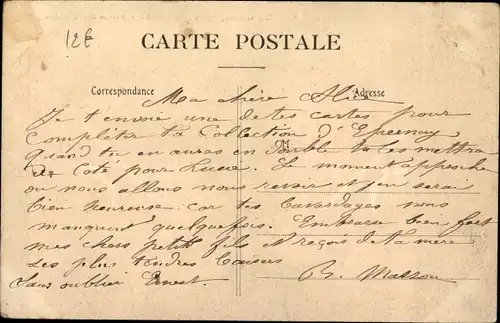 12E
CARTE POSTALE
Correspondance
Adresse
Ma chère Alice
Je t'envoie une de tes cartes pour
compléter ta Collection d'Epernay
quand tu en auras en double tu les mettra
de coté pour Lucie. Le moment approche
ou nous allons nous revoir et j'en serai
bien heureuse car tes bavardages nous
manquent quelquefois. Embrasse bien fort
mes chers petits fils et reçois de ta mère
ses plus tendres baisers
Sans oublier Ernest. B. Masson